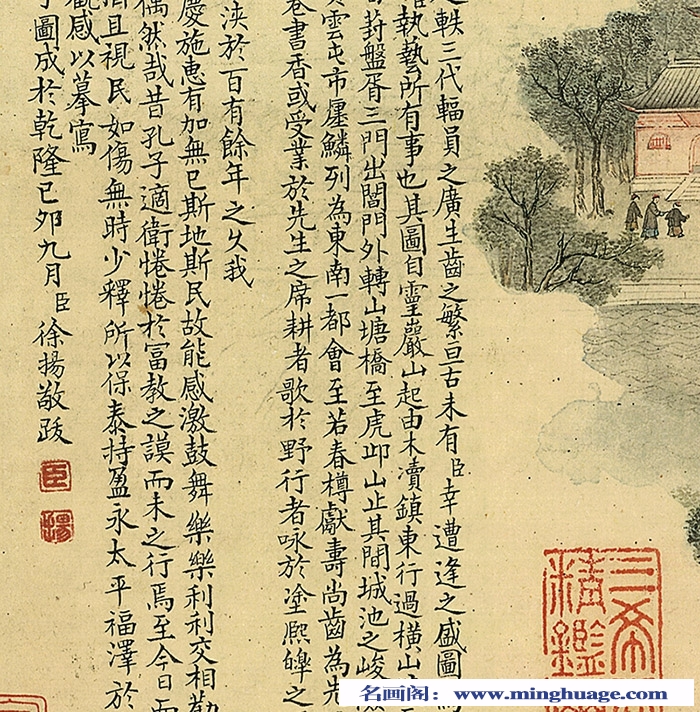 軼三代輻員之廣生齒之繁亘古未有臣幸遭逢之盛圖
執藝所有事也其圖自靈巖山起由木瀆鎮東行過橫山
葑盤胥三門出閶門外轉山塘橋至虎邱山止其間城池之峻
雲屯市廛鱗列為東南一都會至若春樽獻壽尚齒為先
卷書香或受業於先生之席耕者歌於野行者咏於塗熈皡之
浹於百有餘年之久我
慶施惠有加無已斯地斯民故能感激鼓舞樂樂利利交相勸
偶然哉昔孔子適衛惓惓於富教之謨而未之行焉至今日而
且視民如傷無時少釋所以保泰持盈永太平福澤於
觀感以摹寫
圖成於乾隆己卯九月臣徐揚敬跋
臣
揚
三希
精鑑
名画阁：www.minghuage.com